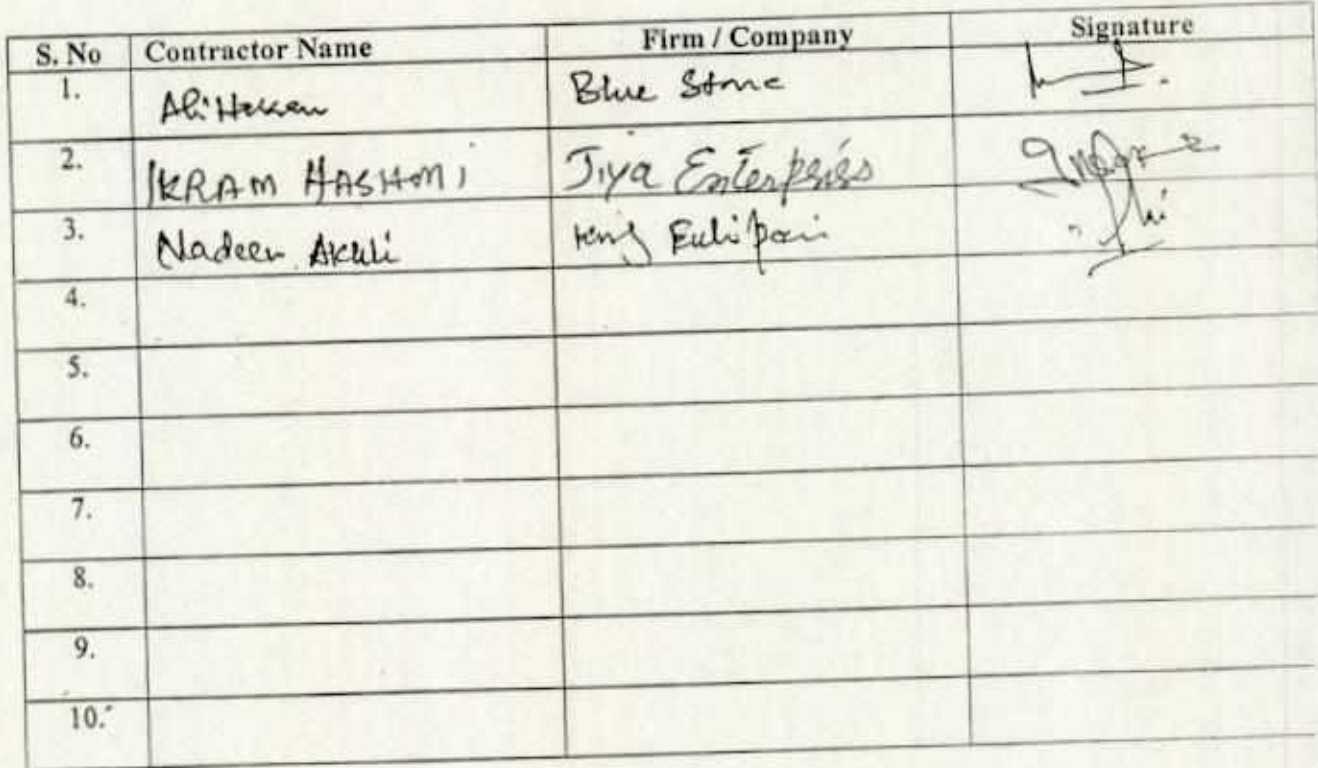 S. No Contractor Name Firm / Company Signature
1. Ali Hassan Blue Stone
2. IKRAM HASHMI Jiya Enterprises
3. Nadeem
4.
5.
6.
7.
8.
9.
10.